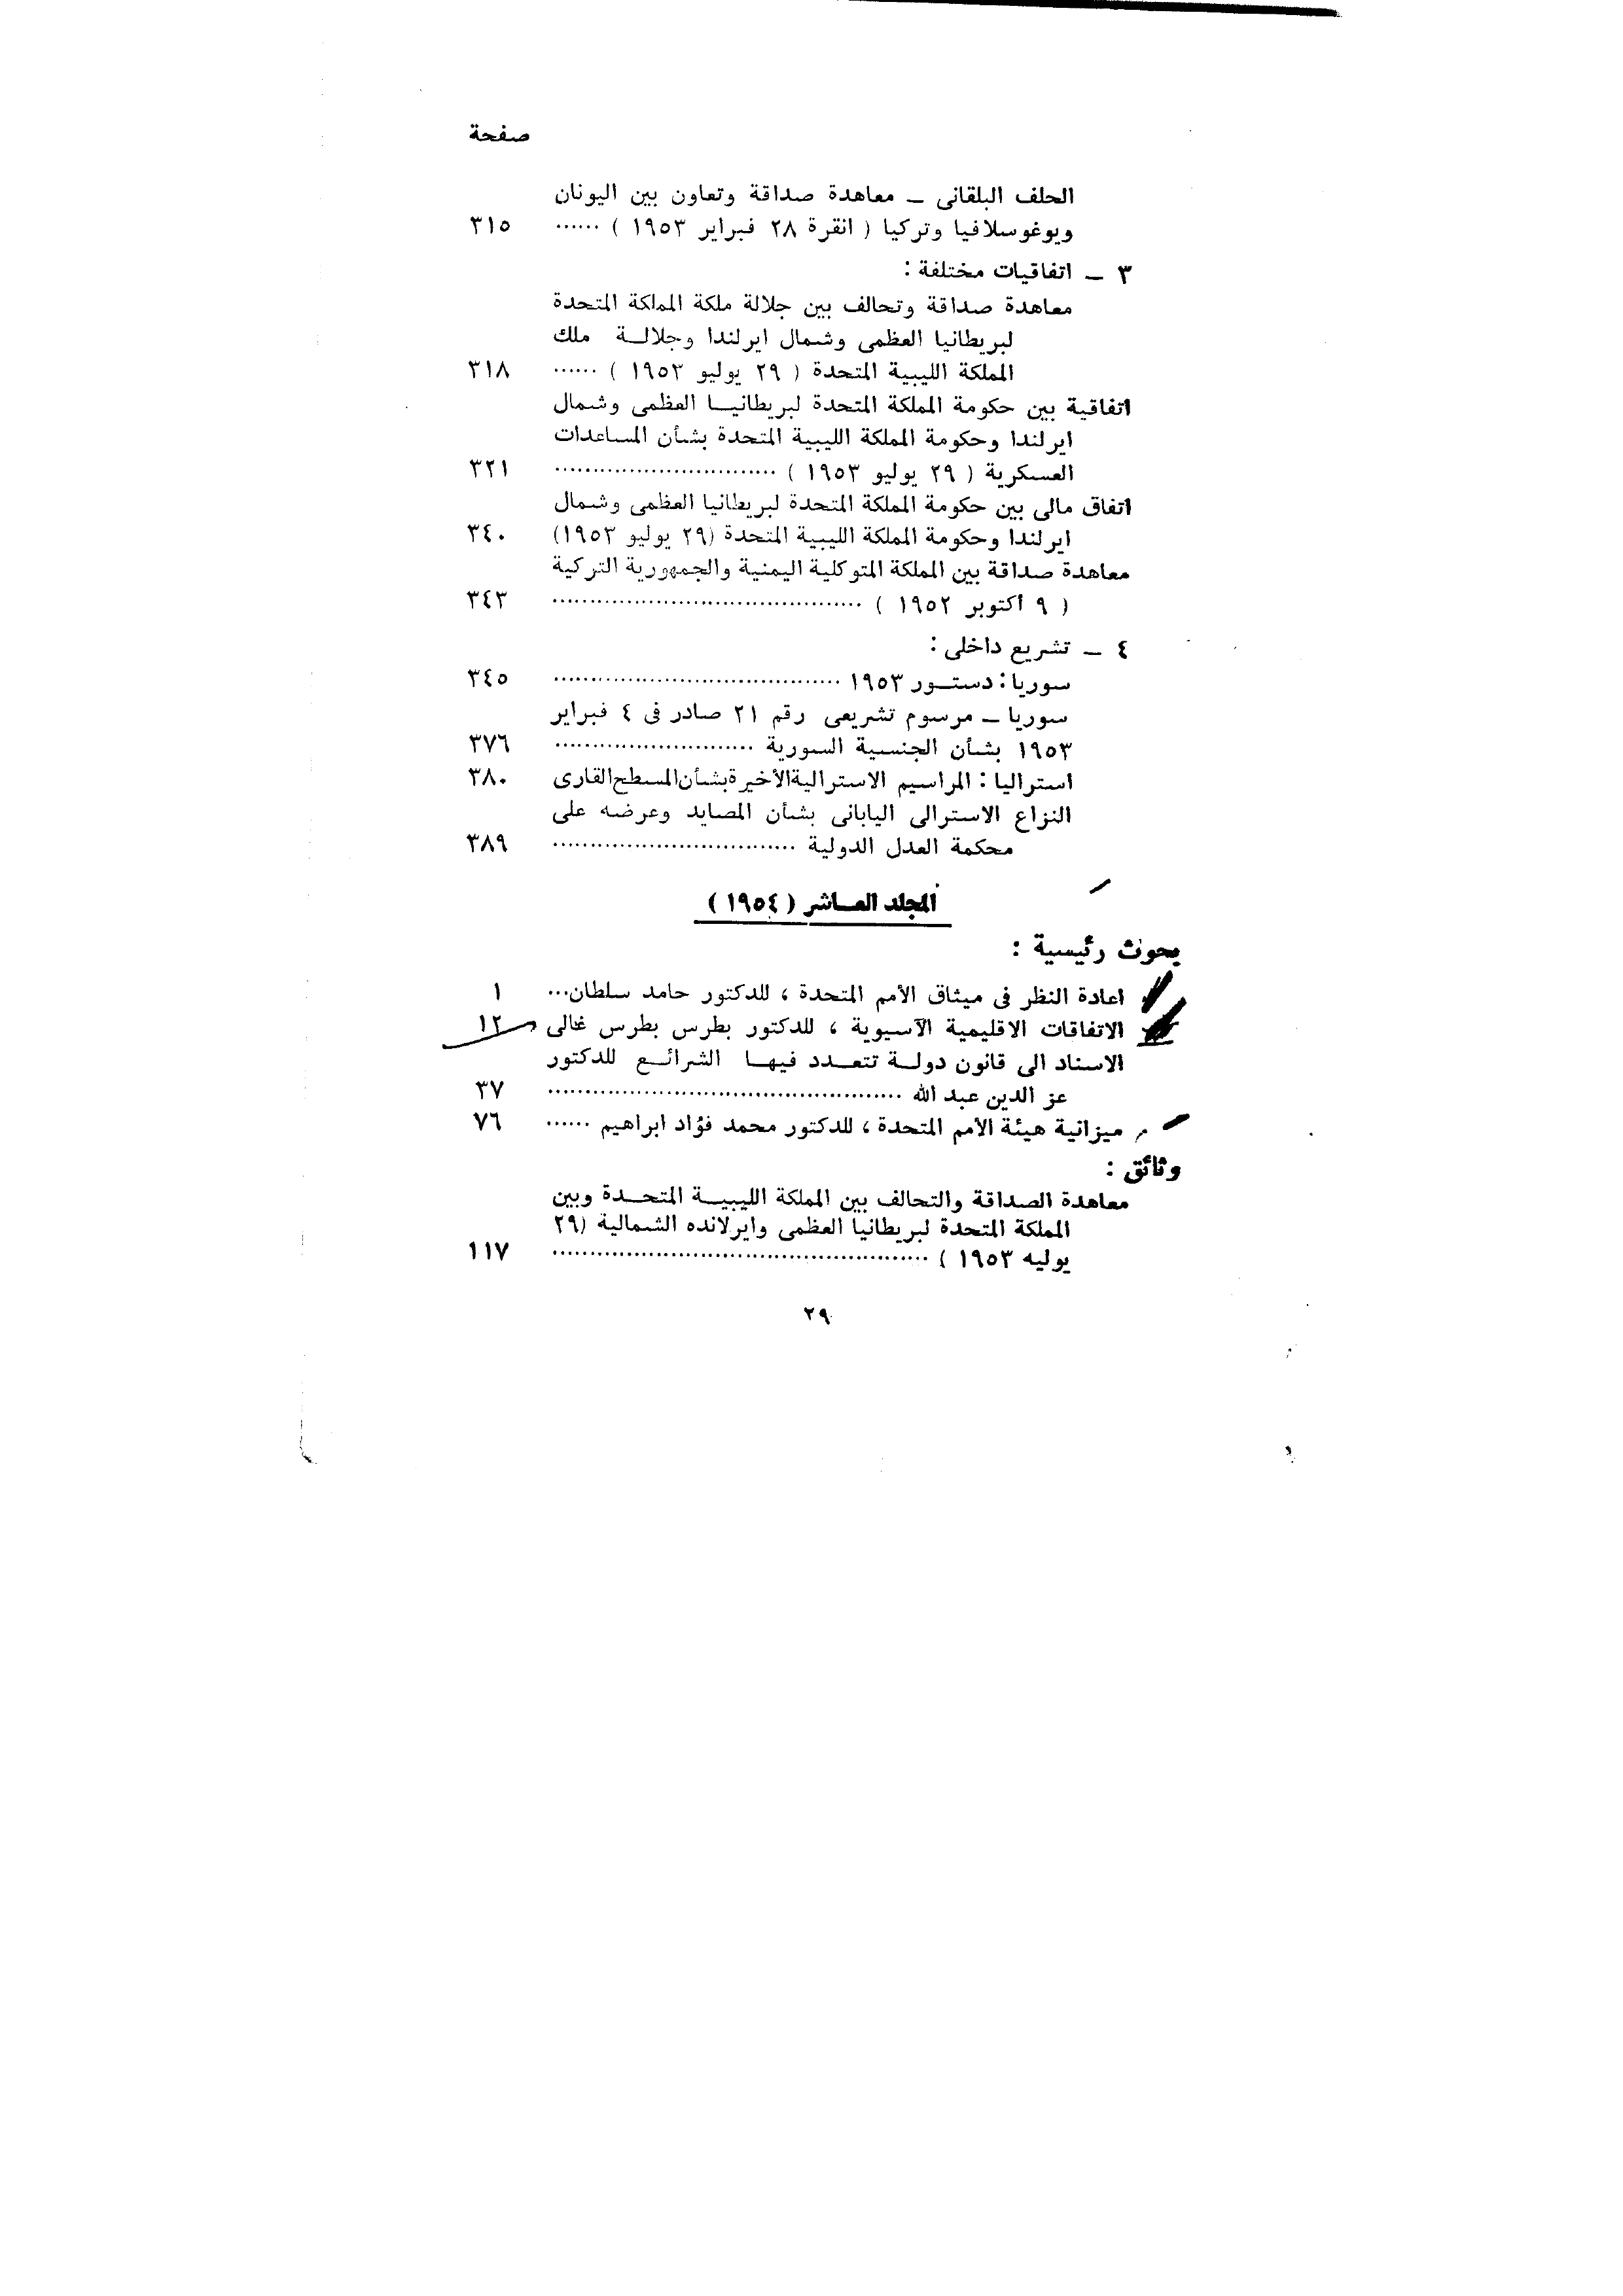 صفحة
الحلف البلقانى ــ معاهدة صداقة وتعاون بين اليونان
ويوغوسلافيا وتركيا ( انقرة ٢٨ فبراير ١٩٥٣ ) ...... ٣١٥
٣ ــ اتفاقيات مختلفة :
معاهدة صداقة وتحالف بين جلالة ملكة المملكة المتحدة
لبريطانيا العظمى وشمال ايرلندا وجلالــة ملك
المملكة الليبية المتحدة ( ٢٩ يوليو ١٩٥٣ ) ...... ٣١٨
اتفاقية بين حكومة المملكة المتحدة لبريطانيــا العظمى وشمال
ايرلندا وحكومة المملكة الليبية المتحدة بشأن المساعدات
العسكرية ( ٢٩ يوليو ١٩٥٣ ) .............................. ٣٢١
اتفاق مالى بين حكومة المملكة المتحدة لبريطانيا العظمى وشمال
ايرلندا وحكومة المملكة الليبية المتحدة (٢٩ يوليو ١٩٥٣) ٣٤٠
معاهدة صداقة بين المملكة المتوكلية اليمنية والجمهورية التركية
( ٩ أكتوبر ١٩٥٢ ) .......................................... ٣٤٣
٤ ــ تشريع داخلى :
سوريا : دستــور ١٩٥٣ ....................................... ٣٤٥
سوريا ــ مرسوم تشريعى رقم ٢١ صادر فى ٤ فبراير
١٩٥٣ بشأن الجنسية السورية ........................... ٣٧٦
استراليا : المراسيم الاسترالية الأخيرة بشأن المسطح القارى ٣٨٠
النزاع الاسترالى اليابانى بشأن المصايد وعرضه على
محكمة العدل الدولية ................................. ٣٨٩
المجلد العــاشر ( ١٩٥٤ )
بحوث رئيسية :
اعادة النظر فى ميثاق الأمم المتحدة ، للدكتور حامد سلطان... ١
الاتفاقات الاقليمية الآسيوية ، للدكتور بطرس بطرس غالى ١٢
الاسناد الى قانون دولــة تتعــدد فيهــا الشرائــع للدكتور
عز الدين عبد الله ................................................ ٣٧
ميزانية هيئة الأمم المتحدة ، للدكتور محمد فؤاد ابراهيم ...... ٧٦
وثائق :
معاهدة الصداقة والتحالف بين المملكة الليبيــة المتحــدة وبين
المملكة المتحدة لبريطانيا العظمى وايرلانده الشمالية (٢٩
يوليه ١٩٥٣ ) .................................................. ١١٧
٢٩